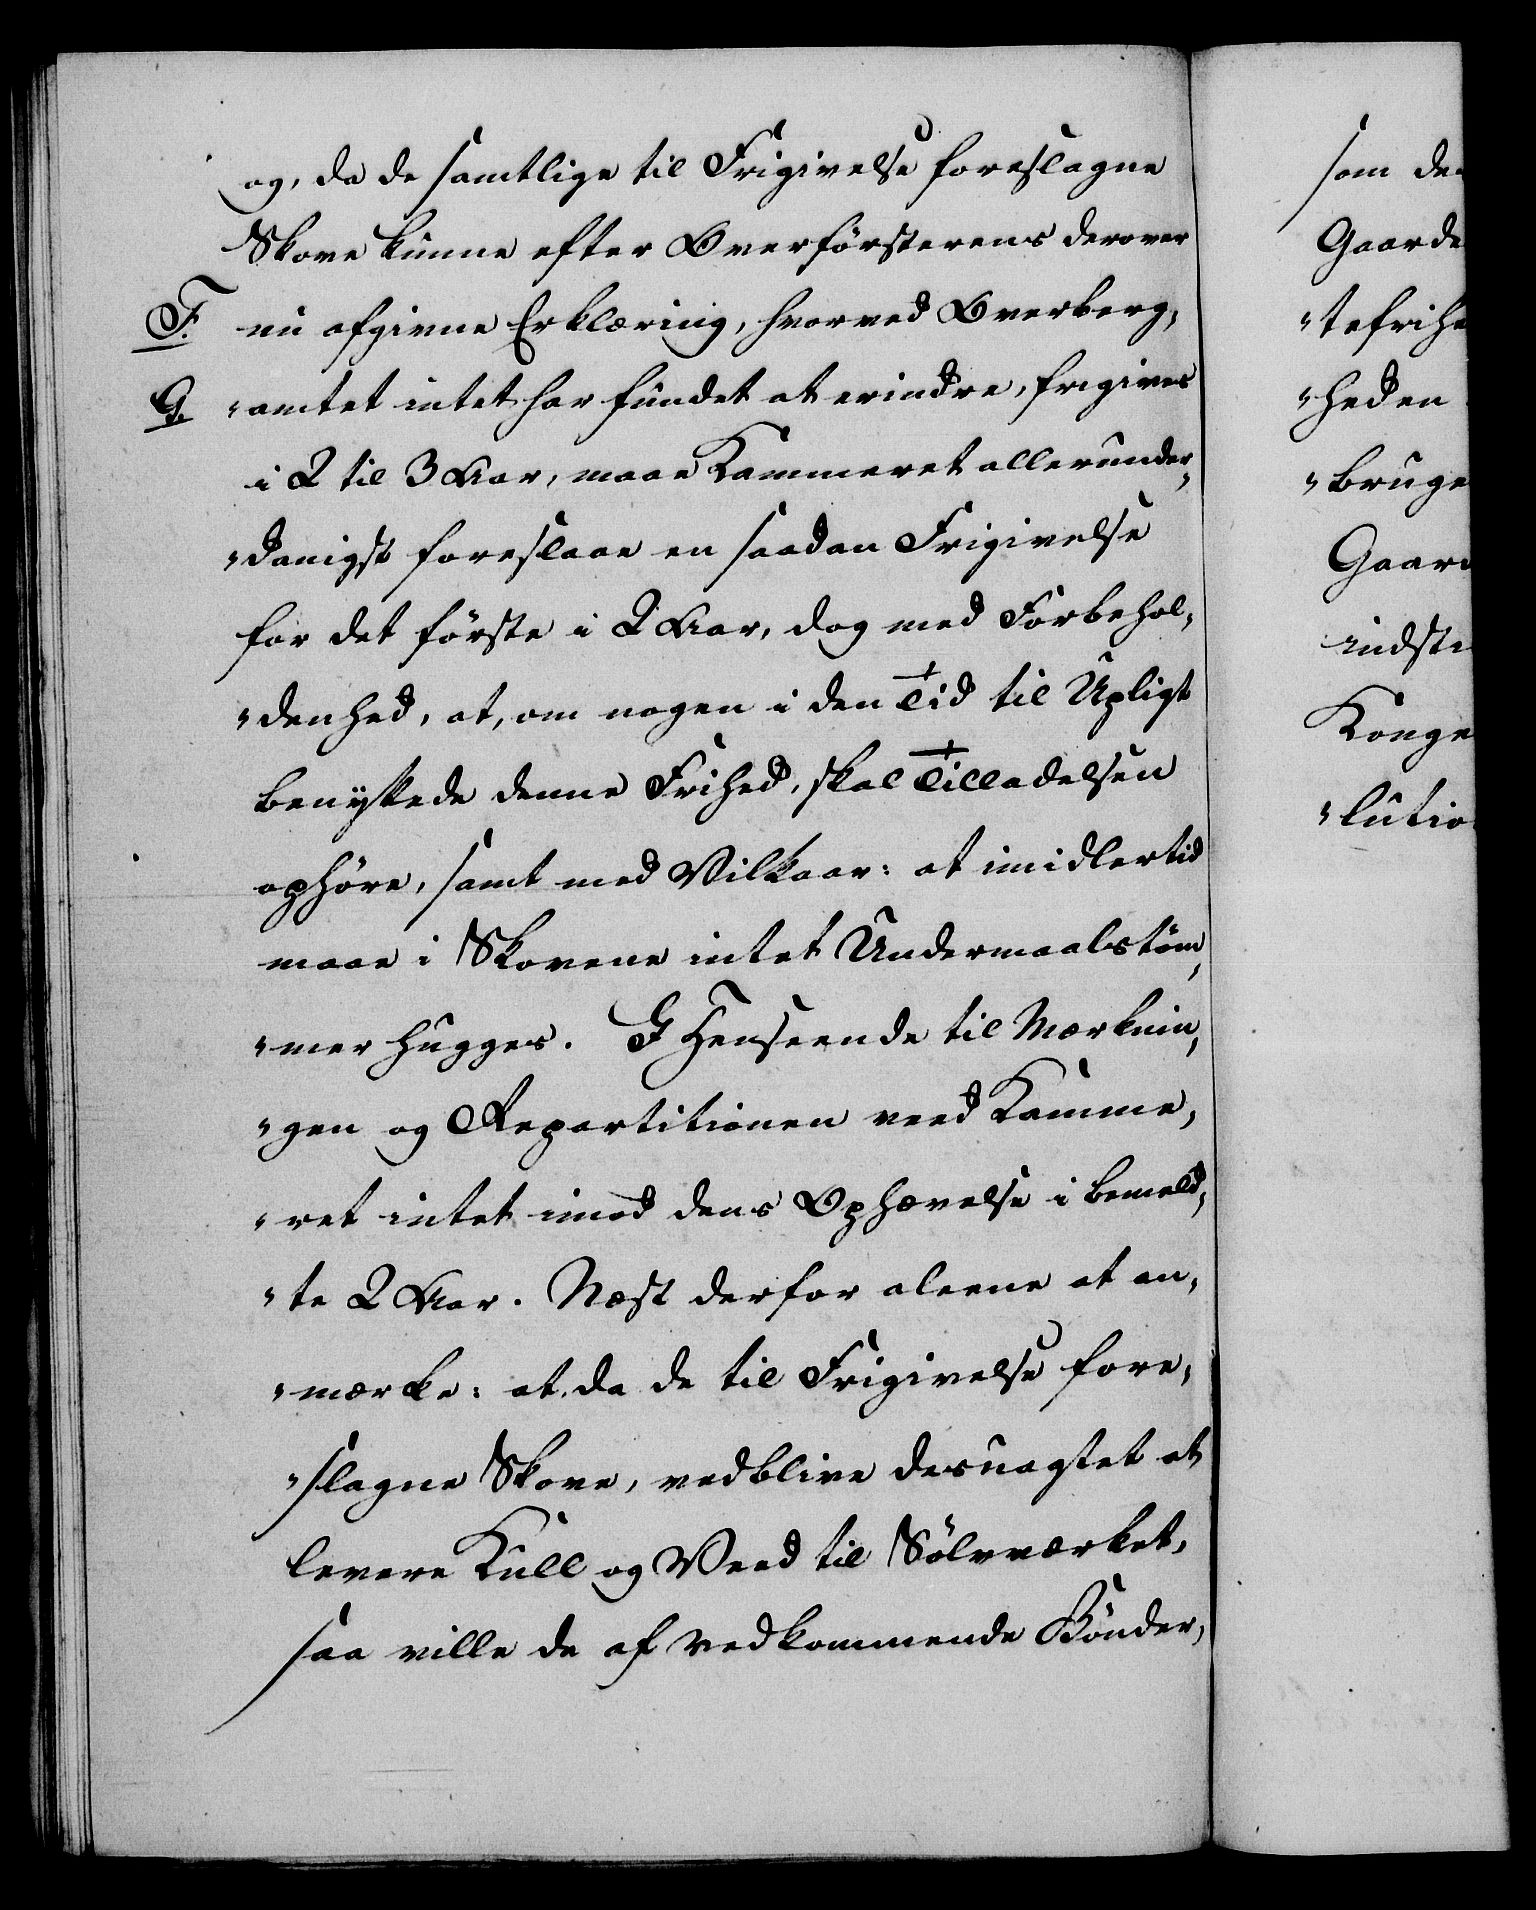 og, da de samtlige til Frigivelse foreslagne
Skove kunne efter Overförsterens derover
F. nu afgivne Erklæring, hvorved Overberg,
G. "amtet intet har fundet at erindre, frigives
i 2 til 3 Aar, maae Kammeret allerunder,
"danigst foreslaae en saadan Frigivelse
for det förste i 2 Aar, dog med Forbehol,
"denhed, at, om nogen i den Tid til Upligt
benyttede denne Frihed, skal Tilladelsen
ophöre, samt med Vilkaar: at imidlertid
maae i Skovene intet Undermaalstöm,
"mer hugges. I Henseende til Mærknin,
"gen og Repartitionen veed Kamme,
"ret intet imod dens Ophævelse i bemeld,
"te 2 Aar. Næst derfor aleene at an,
"mærke: at da de til Frigivelse fore,
"slagne Skove, vedblive desuagtet at
levere Kull og Veed til Sölvværket,
saa ville de af vedkommende Bönder,
som de
Gaarde
"tefrihe
"heden
"bruge
Gaar
indste
Konge
"lutio